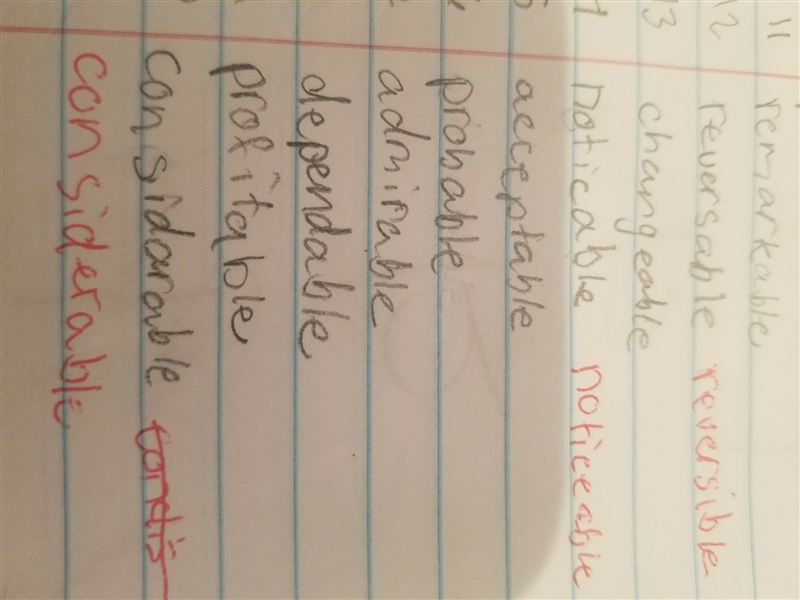 11 remarkable
12 reversable reversible
13 changeable
noticable noticeable
acceptable
probable
admirable
dependable
profitable
considarable condis
considerable